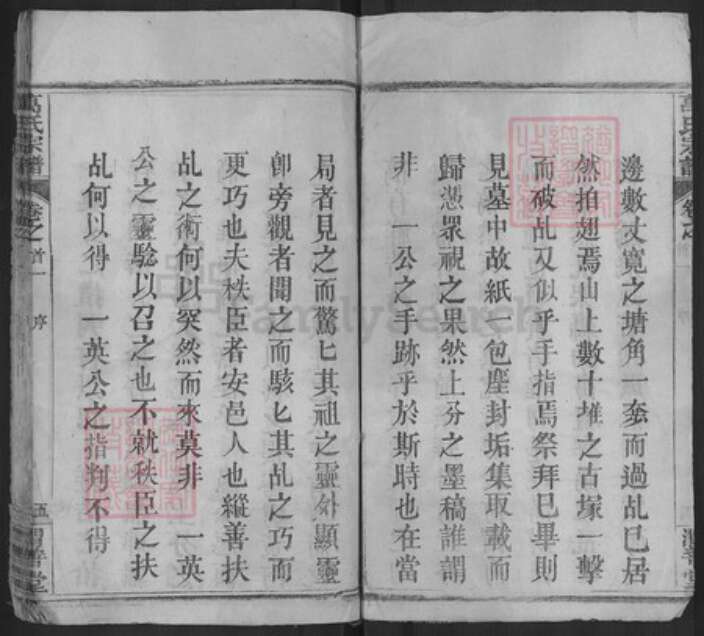 邊數丈寬之塘角一奔而過乩已居
然拍翅焉山上數十堆之古塚一擊
而破乩又似乎手指焉祭拜巳畢則
見墓中故紙一包塵封垢集取載而
歸憑眾視之果然上分之墨稿誰謂
非 一公之手跡乎於斯時也在當
局者見之而驚匕其祖之靈外顯靈
卽旁觀者聞之而駭匕其乩之巧而
更巧也夫秩臣者安邑人也縱善扶
乩之術何以突然而來莫非 一英
公之靈騐以召之也不就秩臣之扶
乩何以得 一英公之指判不得
萬氏宗譜 卷之首一 序 五
FamilySearch